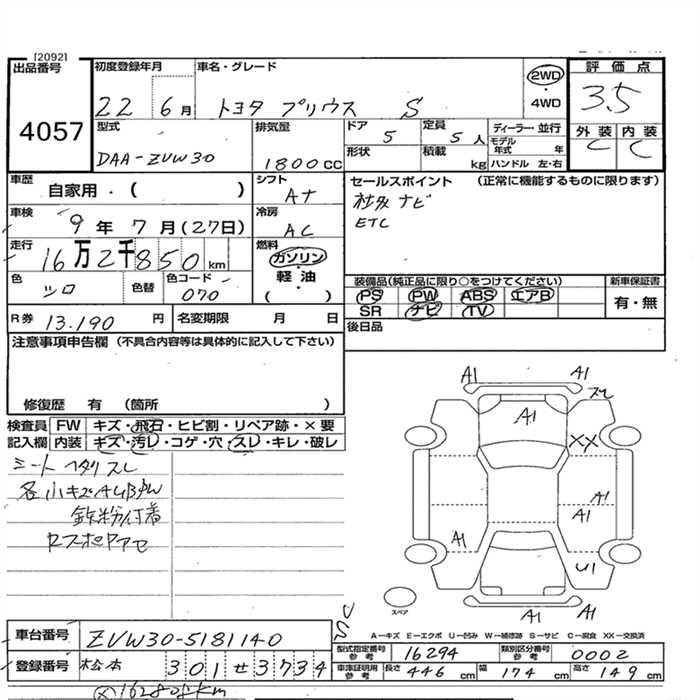 [2092]
出品番号
4057
初度登録年月
22 6月
車名・グレード
トヨタ プリウス S
2WD
・
4WD
評価点
3.5
外装 内装
C C
型式
DAA-ZVW30
排気量
1800CC
ドア 5
形状
定員 5人
積載 kg
ディーラー・並行
モデル年式 年
ハンドル 左・右
車歴
自家用・( )
シフト
AT
車検
9年7月(27日)
冷房
AC
走行
16万2千850km
燃料
ガソリン・軽油・( )
色
シロ
色替
色コード
070
R券 13.190円
名変期限 月 日
セールスポイント (正常に機能するものに限ります)
社外 ナビ
ETC
装備品(純正品に限り○をつけてください)
PS PW ABS エアB
SR ナビ TV
新車保証書
有・無
後日品
注意事項申告欄 (不具合内容等は具体的に記入して下さい)
修復歴 有 (箇所 )
検査員記入欄
FW キズ・飛石・ヒビ割・リペア跡・×要
内装 キズ・汚レ・コゲ・穴・スレ・キレ・破レ
シート ヘタリ スレ
各小キズ
鉄粉付着
A1 A1
A1
XX
A1
A1
A1
U1
A1
A1
スペア
A―キズ E―エクボ U―凹み W―補修跡 S―サビ C―腐食 XX―交換済
車台番号 ZVW30-5181140
登録番号 松本 301せ3734
型式指定番号 参考 16294
類別区分番号 参考 0002
車庫証明用 参考 長さ 446cm 幅 174cm 高さ 149cm